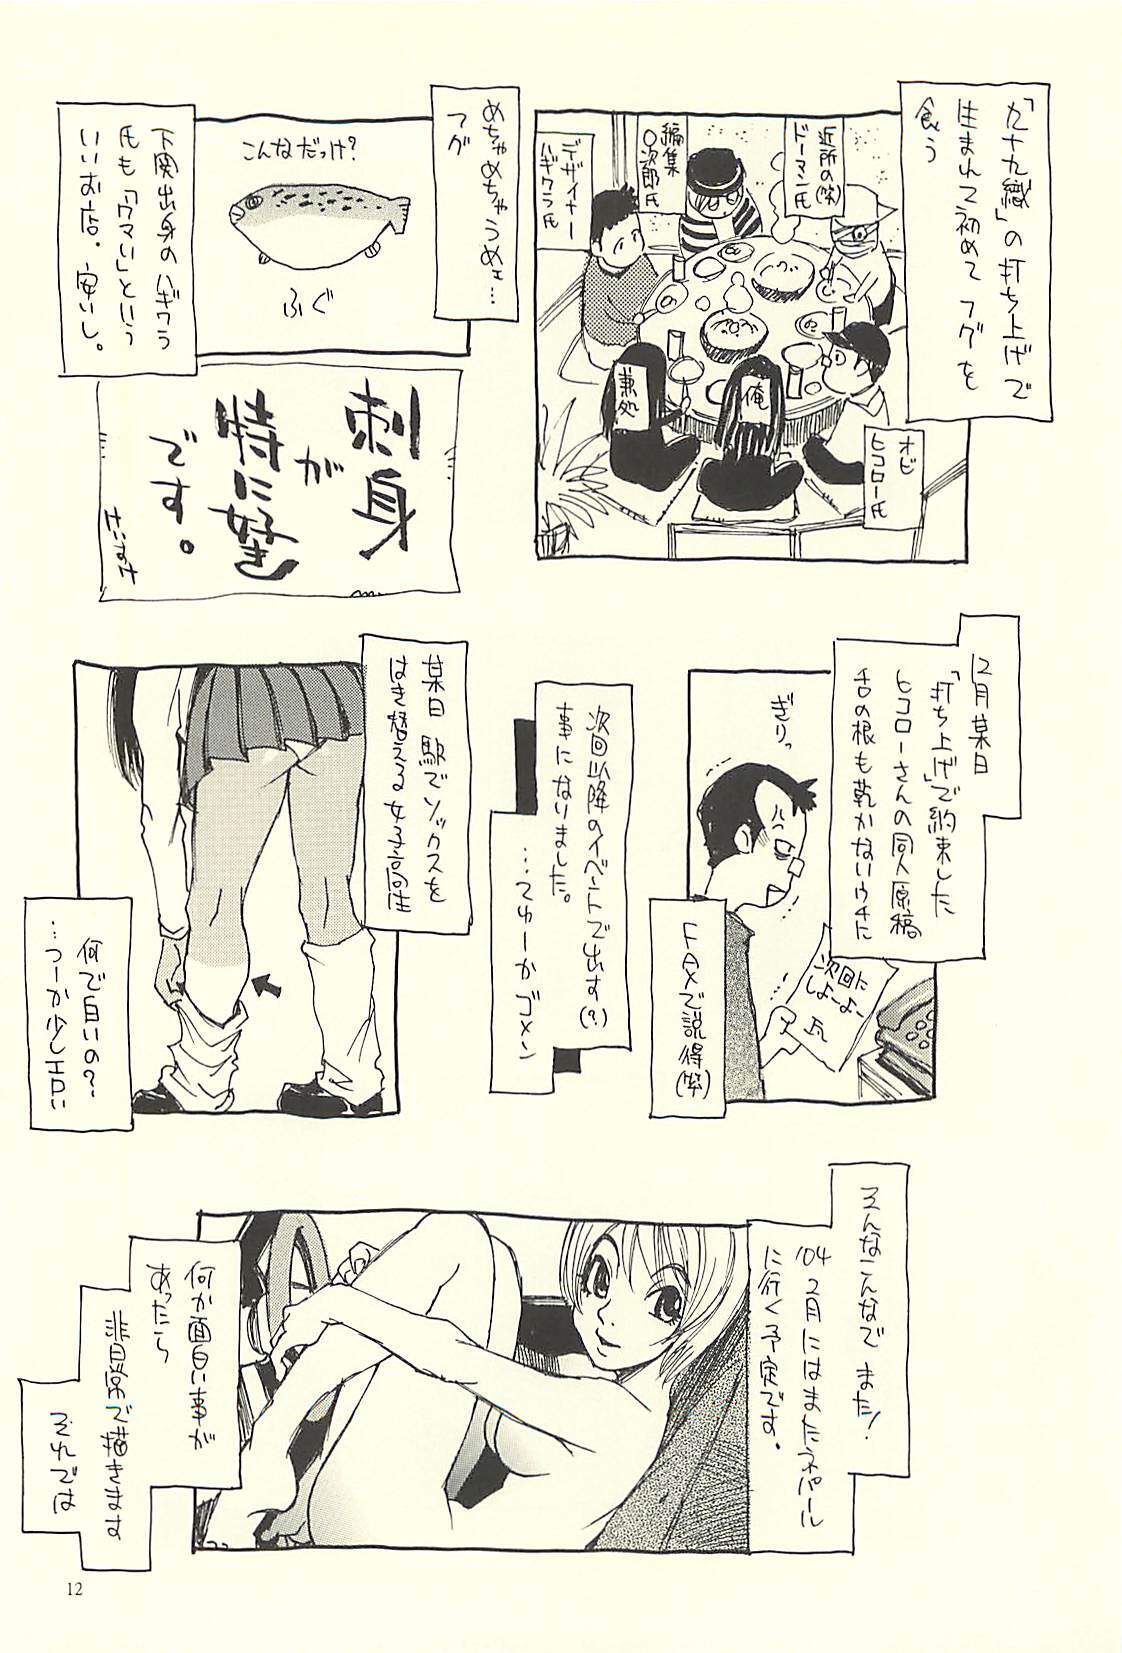 「九十九織」の打ち上げで
生まれて初めてフグを
食う
近所の(株)
ドーマン氏
編集
〇次郎氏
デザイナー
ハギワラ氏
兼処
俺
オビ
ヒコロー氏
めちゃめちゃうめェ…
フグ
こんなだっけ?
ふぐ
下関出身のハギワラ
氏も「ウマい」という
いいお店。安いし。
刺身
が
特に好き
です。
けいすけ
12月某日
「打ち上げ」で約束した
ヒコローさんの同人原稿
舌の根も乾かないウチに
ぎりっ
次回に
しよーよー
FAXで説得
次回以降のイベントで出す(?)
事になりました。
…てゆーかゴメン
某日 駅でソックスを
はき替える女子高生
何で白いの?
…つーか少しエロい
そんなこんなで また!
'04 2月にはまたネパール
に行く予定です。
何か面白い事が
あったら
非日常で描きます
それでは
12